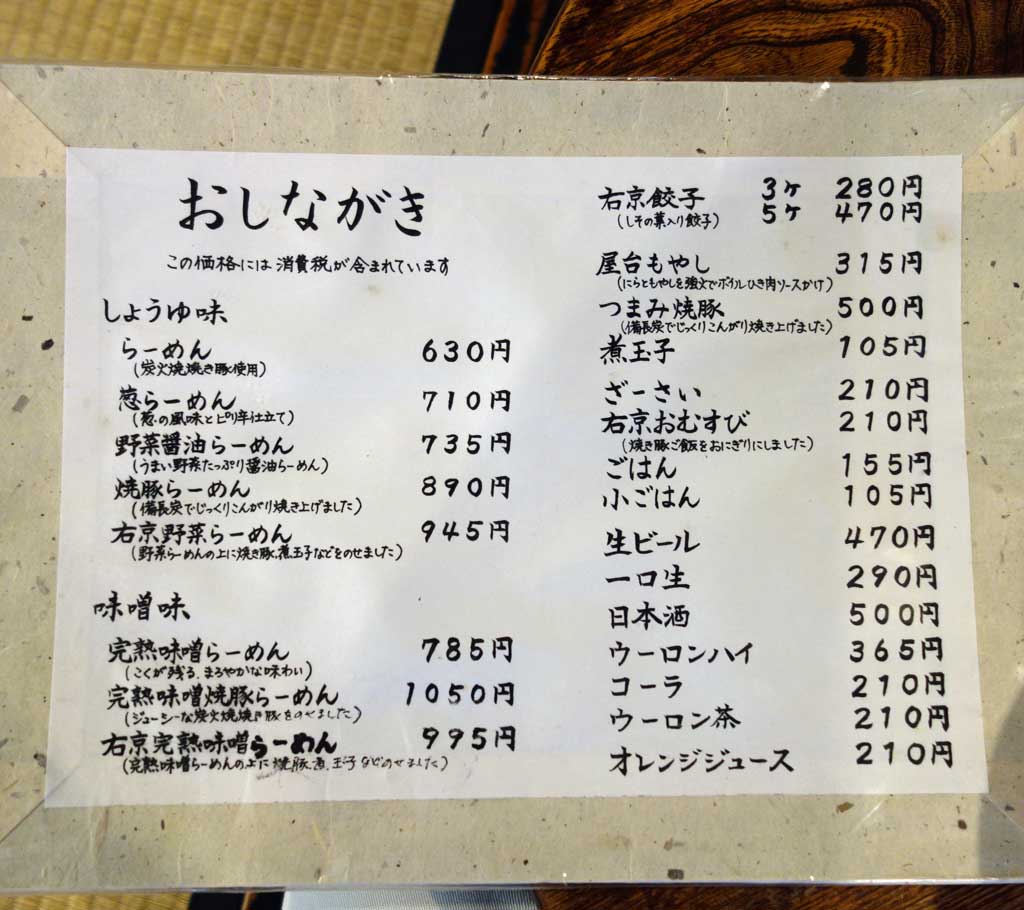 おしながき
この価格には消費税が含まれています
しょうゆ味
らーめん 630円
(炭火焼焼き豚使用)
葱らーめん 710円
(葱の風味とピリ辛仕立て)
野菜醤油らーめん 735円
(うまい野菜たっぷり醤油らーめん)
焼豚らーめん 890円
(備長炭でじっくりこんがり焼き上げました)
右京野菜らーめん 945円
(野菜らーめんの上に焼き豚、煮玉子などをのせました)
味噌味
完熟味噌らーめん 785円
(こくが残る、まろやかな味わい)
完熟味噌焼豚らーめん 1050円
(ジューシーな炭火焼焼き豚をのせました)
右京完熟味噌らーめん 995円
(完熟味噌らーめんの上に焼豚、煮、玉子などのせました)
右京餃子 3ヶ 280円
(しその葉入り餃子) 5ヶ 470円
屋台もやし 315円
(にらともやしを強火でボイルひき肉ソースかけ)
つまみ焼豚 500円
(備長炭でじっくりこんがり焼き上げました)
煮玉子 105円
ざーさい 210円
右京おむすび 210円
(焼き豚ご飯をおにぎりにしました)
ごはん 155円
小ごはん 105円
生ビール 470円
一口生 290円
日本酒 500円
ウーロンハイ 365円
コーラ 210円
ウーロン茶 210円
オレンジジュース 210円